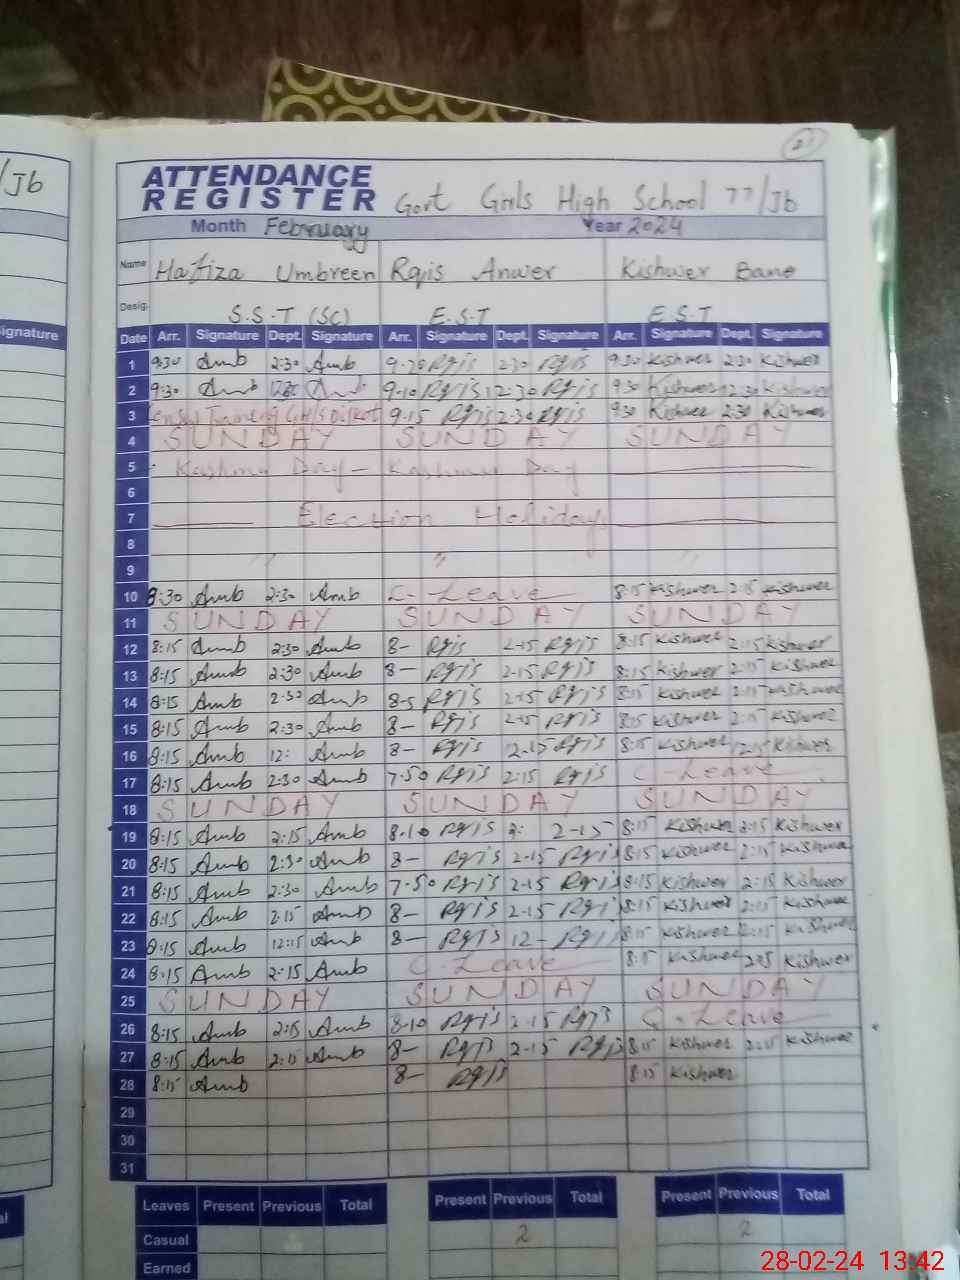 /Jb
ignature
21
ATTENDANCE
REGISTER Govt Girls High School 77/Jb
Month February Year 2024
Name Hafiza Umbreen Rqis Anwer Kishwer Bano
Desig. S.S.T (SC) E.S.T E.S.T
Date Arr. Signature Dept. Signature Arr. Signature Dept. Signature Arr. Signature Dept. Signature
1 9:30 Amb 2:30 Amb 9-20 Rqis 2 30 Rqis 9:30 Kishwer 2:30 Kishwer
2 9:30 Amb Amb 9-10 Rqis 12-30 Rqis 9:30 Kishwer 12:30 Kishwer
3 Training 9-15 Rqis 2-30 Rqis 9:30 Kishwer 2:30 Kishwer
4 SUNDAY SUNDAY SUNDAY
5 Kashmir Day - Kashmir Day
6
7 Election Holidays
8
9 " " "
10 8:30 Amb 2:30 Amb C-Leave 8:15 Kishwer 2:15 Kishwer
11 SUNDAY SUNDAY SUNDAY
12 8:15 Amb 2:30 Amb 8- Rqis 2-15 Rqis 8:15 Kishwer 2:15 Kishwer
13 8:15 Amb 2:30 Amb 8- Rqis 2-15 Rqis 8:15 Kishwer 2:15 Kishwer
14 8:15 Amb 2:30 Amb 8-5 Rqis 2-15 Rqis 8:15 Kishwer 2:15 Kishwer
15 8:15 Amb 2:30 Amb 8- Rqis 2-15 Rqis 8:15 Kishwer 2:15 Kishwer
16 8:15 Amb 12: Amb 8- Rqis 12-15 Rqis 8:15 Kishwer 12:15 Kishwer
17 8:15 Amb 2:30 Amb 7-50 Rqis 2:15 Rqis C-Leave
18 SUNDAY SUNDAY SUNDAY
19 8:15 Amb 2:15 Amb 8-10 Rqis 2: 2-15 8:15 Kishwer 2:15 Kishwer
20 8:15 Amb 2:30 Amb 8- Rqis 2-15 Rqis 8:15 Kishwer 2:15 Kishwer
21 8:15 Amb 2:30 Amb 7-50 Rqis 2-15 Rqis 8:15 Kishwer 2:15 Kishwer
22 8:15 Amb 2:15 Amb 8- Rqis 2-15 Rqis 8:15 Kishwer 2:15 Kishwer
23 8:15 Amb 12:15 Amb 8- Rqis 12- Rqis 8:15 Kishwer 12:15 Kishwer
24 8:15 Amb 2:15 Amb C-Leave 8:15 Kishwer 2:15 Kishwer
25 SUNDAY SUNDAY SUNDAY
26 8:15 Amb 2:15 Amb 8-10 Rqis 2-15 Rqis C-Leave
27 8:15 Amb 2:15 Amb 8- Rqis 2-15 Rqis 8:15 Kishwer 2:15 Kishwer
28 8:15 Amb 8- Rqis 8:15 Kishwer
29
30
31
Leaves Present Previous Total Present Previous Total Present Previous Total
Casual 2 2
Earned
28-02-24 13:42